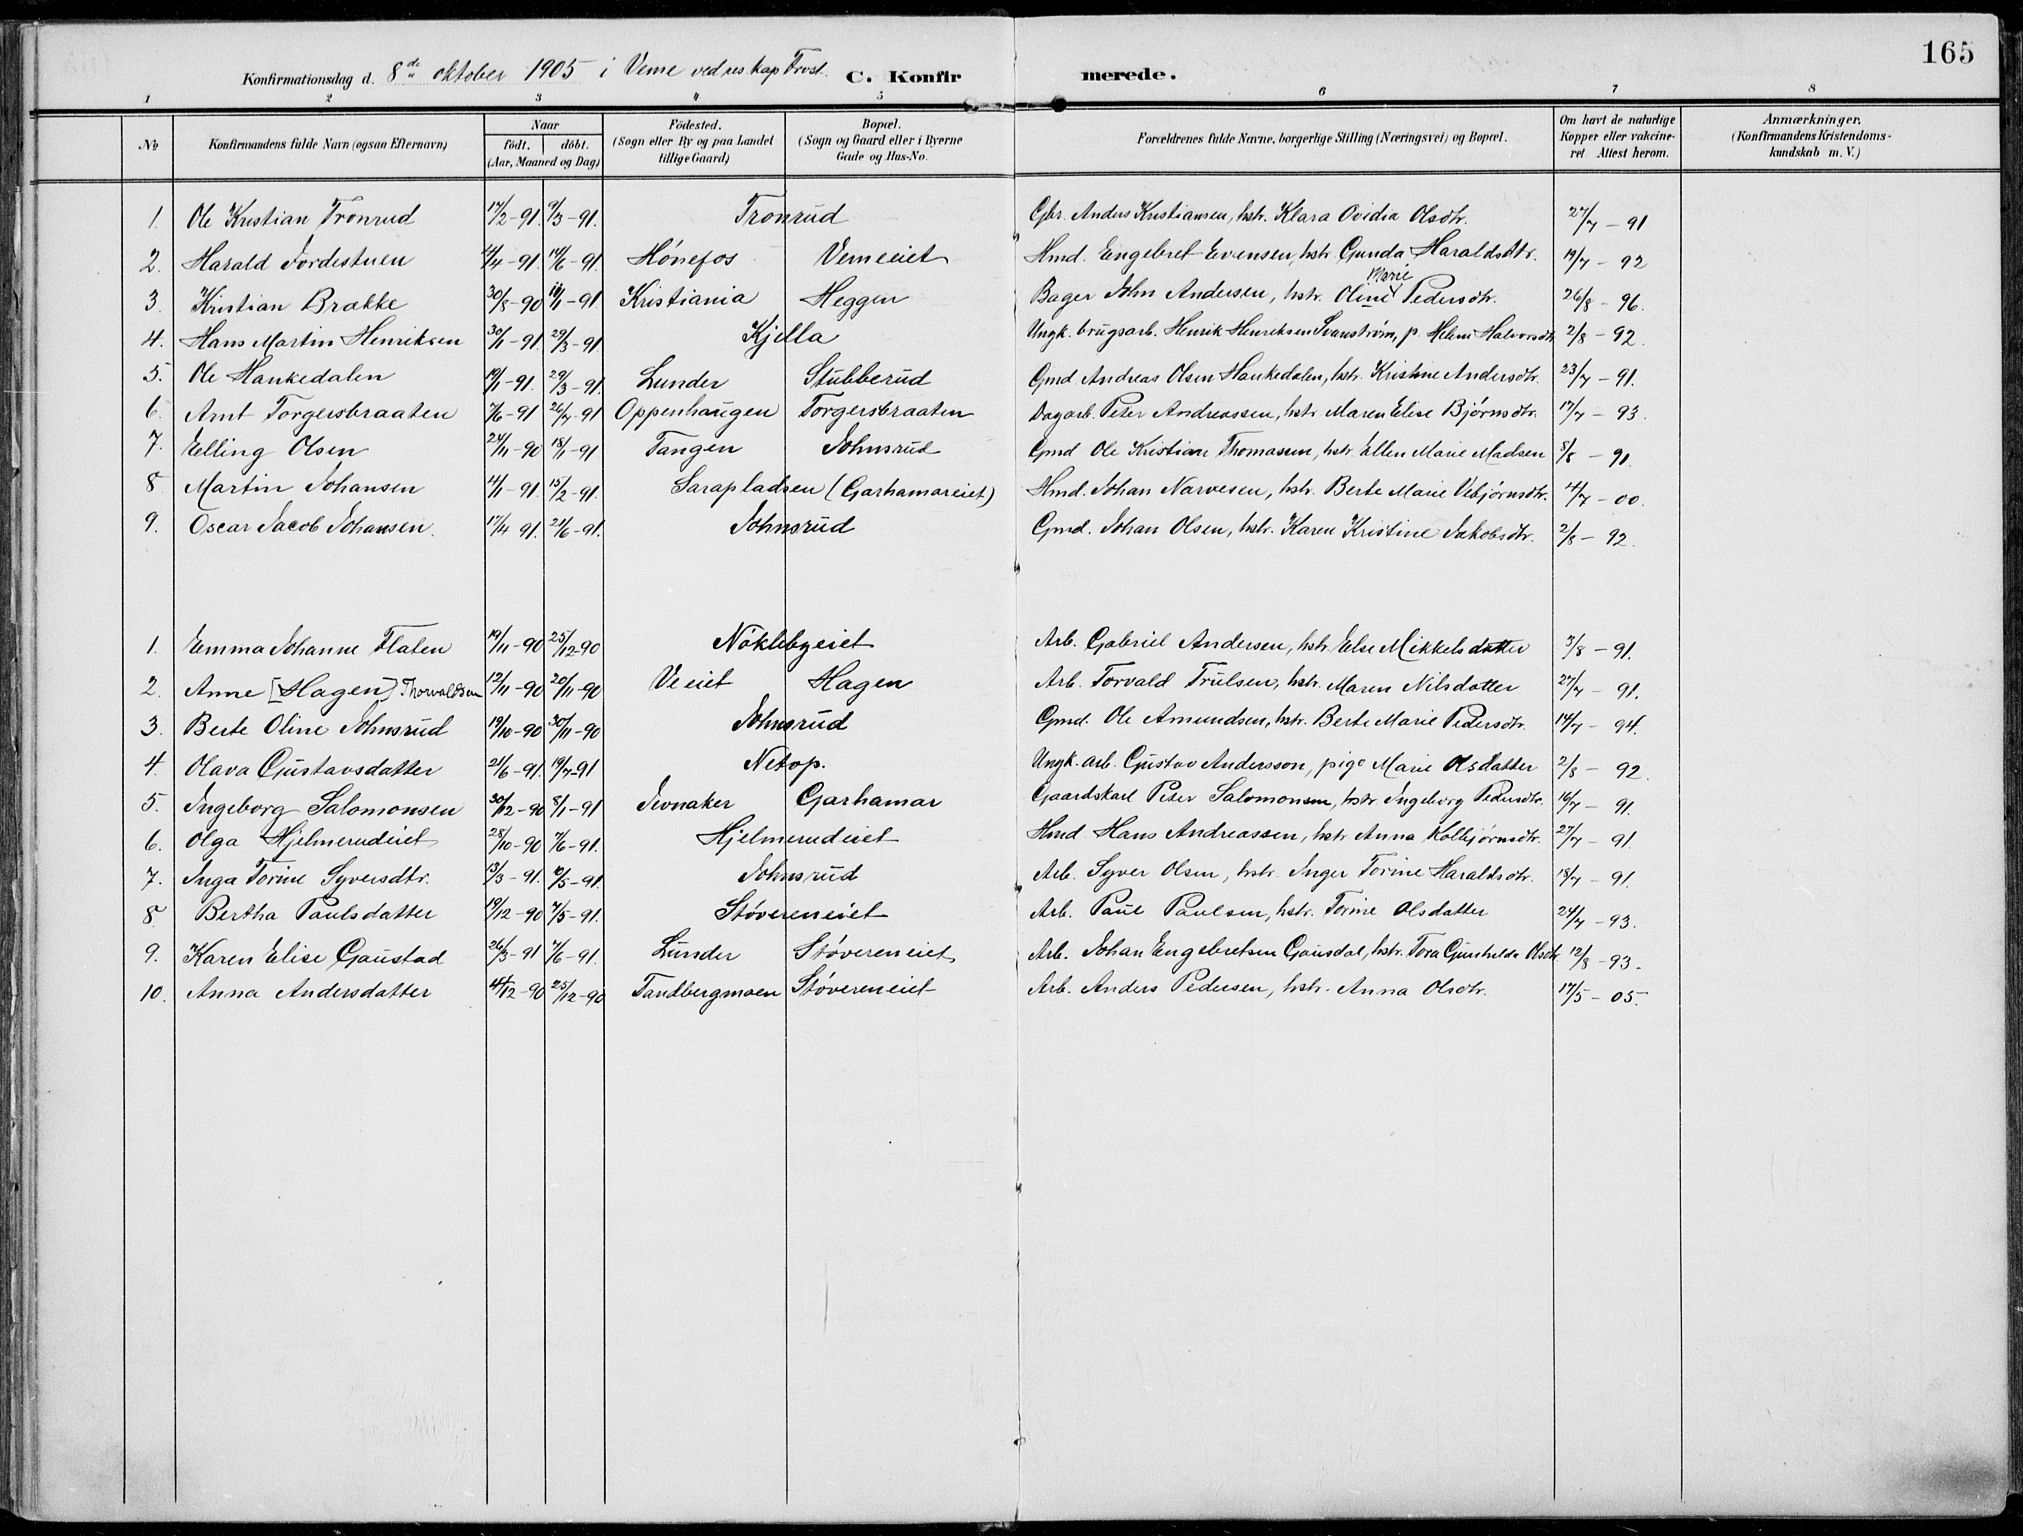 165
Konfirmationsdag d. 8de oktober 1905 i Veme ved res. kap Frost. C. Konfirmerede.
1 2 3 4 5 6 7 8
No Konfirmandens fulde Navn (ogsaa Efternavn) Naar födt. döbt. (Aar, Maaned og Dag) Födested. (Sogn eller By og paa Landet tillige Gaard) Bopæl. (Sogn og Gaard eller i Byerne Gade og Hus-No. Forældrenes fulde Navne, borgerlige Stilling (Næringsvei) og Bopæl. Om havt de naturlige Kopper eller vakcineret Attest herom. Anmærkninger. (Konfirmandens Kristendomskundskab m. V.)
1. Ole Kristian Tronrud 17/2-91. 9/3-91. Tronrud Gbr. Anders Kristiansen, hstr. Klara Ovidia Olsdtr. 27/7-91
2. Harald Jordestuen 11/4-91. 14/6-91. Hónefos Vemeeiet Hmd. Engebret Evensen, hstr Gunda Haraldsdtr. 19/7-92
3. Kristian Brække 30/8-90 18/1-91 Kristiania Heggen Bager John Andersen, hstr. Oline Marie Pedersdtr. 26/8-96.
4. Hans Martin Henriksen 30/1-91 29/3-91. Kjella Ungk. brugsarb. Henrik Henriksen Svanström, p. Helene Halvorsdtr 2/8-92.
5. Ole Hankedalen 19/1-91. 29/3-91. Lunder Stubberud Gmd Andreas Olsen Hankedalen, hstr. Kristine Andersdtr. 23/7-91.
6. Arnt Torgersbraaten 7/6-91 26/7-91 Oppenhaugen Torgersbraaten Dagarb. Peter Andreassen, hstr Maren Elise Bjørnsdtr. 17/7-93.
7. Elling Olsen 24/11-90 18/1-91 Tangen Johnsrud Gmd Ole Kristian Thomasen, hstr. Ellen Marie Madsen 8/8-91.
8 Martin Johansen 14/1-91. 15/2-91. Sarapladsen (Garhamareiet) Hmd. Johan Narvesen, hstr. Berte Marie Vebjørnsdtr. 4/7-00.
9. Oscar Jacob Johansen. 17/4 91. 21/6-91. Johnsrud Gmd. Johan Olsen, hstr. Karen Kristine Jakobsdtr. 2/8-92.
1. Emma Johanne Flaten 19/11-90 25/12-90 Nöklebyeiet Arb. Gabriel Andersen, hstr. Else Mikkelsdatter 3/8-91.
2. Anne [Hagen] Thorvaldsen 12/11-90 20/11-90 Veeiet Hagen Arb. Torvald Trulsen, hstr. Maren Nilsdatter 27/7-91.
3. Berte Oline Johnsrud 19/10-90 30/11-90 Johnsrud Gmd. Ole Amundsen, hstr. Berte Marie Pedersdtr. 14/7-94.
4. Olava Gustavsdatter 21/6-91. 19/7-91 Netop. Ungk. arb. Gustav Andersson, pige Marie Olsdatter 2/8-92.
5. Ingeborg Salomonsen 30/12-90 8/1-91 Jevnaker Garhamar Gaardskarl Peter Salomonsen, hstr. Ingeborg Pedersdtr. 16/7-91.
6. Olga Hjelmerudeiet 28/10-90 7/6-91. Hjelmerudeiet Hmd Hans Andreassen, hstr Anna Kolbjørnsdtr. 27/7-91.
7. Inga Torine Syversdtr. 13/3-91. 10/5-91. Johnsrud Arb. Syver Olsen, hstr. Inger Torine Haraldsdtr. 18/7-91.
8. Bertha Paulsdatter 19/12-90 7/5-91. Støvereneiet Arb. Paul Paulsen, hstr. Torine Olsdatter 24/7-93.
9. Karen Elise Gaustad 26/3-91 7/6-91. Lunder Støvereneiet Arb. Johan Engebretsen Gausdal, hstr. Tora Gunhilda Olsdtr 12/8-93.
10. Anna Andersdatter 4/12-90 25/12-90 Tandbergmoen Støvereneiet Arb. Anders Pedersen, hstr. Anna Olsdtr. 17/5-05.